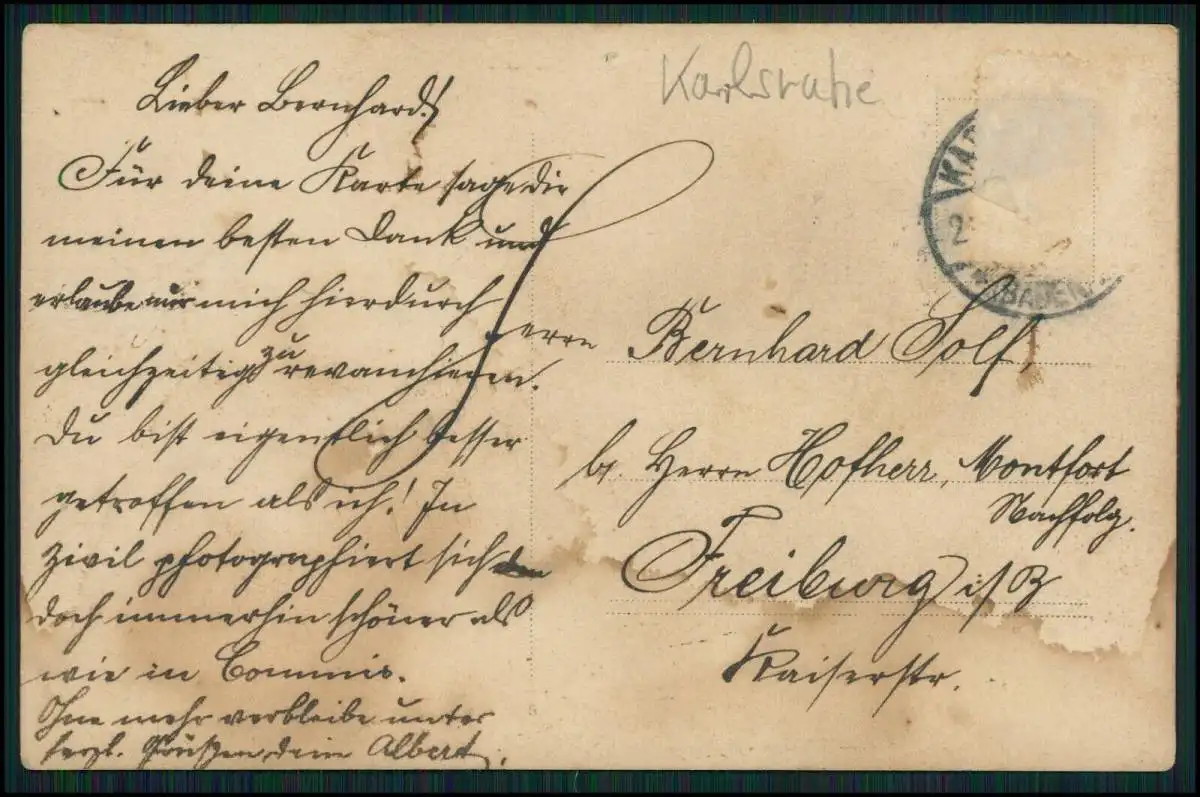 Lieber Bernhard!
Für deine Karte sage dir
meinen besten Dank und
erlaube mir mich hierdurch
gleichzeitig zu revanchieren.
Du bist eigentlich besser
getroffen als ich! In
Zivil photographiert sich
doch immerhin schöner als
wie in Commis.
Ohne mehr verbleibe unter
herzl. Grüßen dein Albert.
Karlsruhe
KA
2
BADEN
Herrn Bernhard Solf,
b/. Herrn Hofherr, Montfort
Nachfolg.
Freiburg i/B
Kaiserstr.